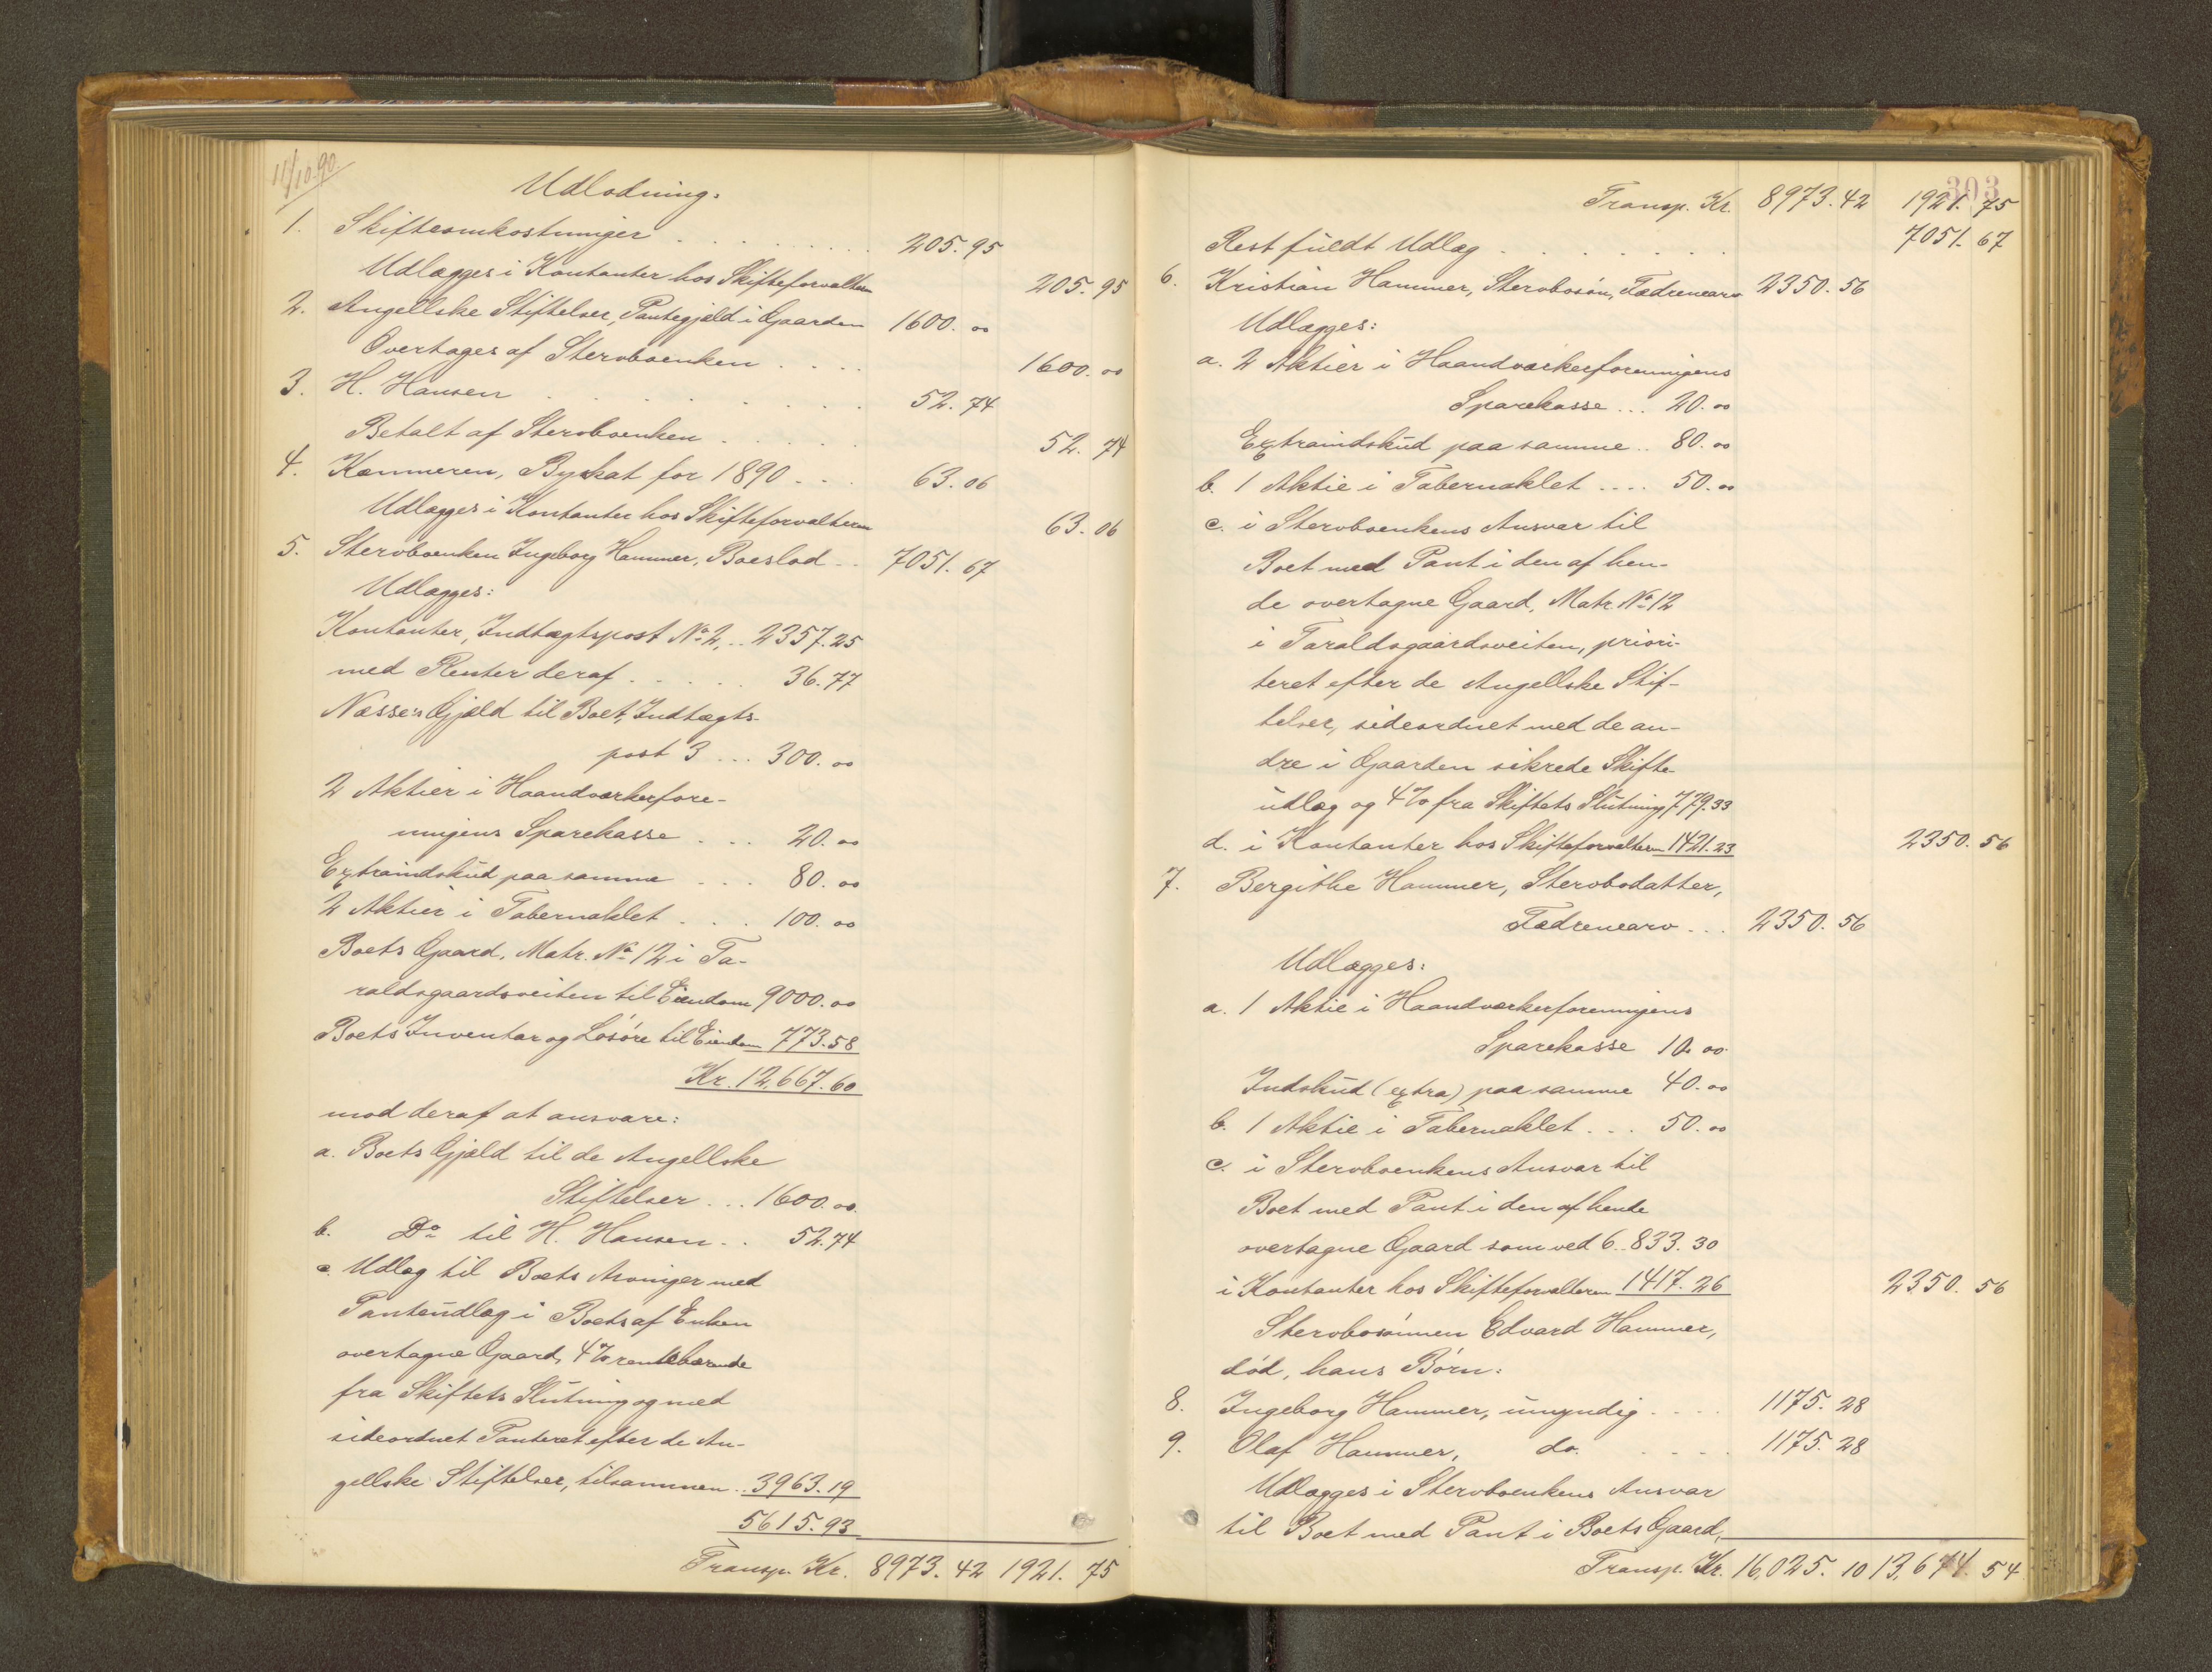 11/10.90.
Udlodning:
1. Skifteomkostninger . . . . . . . . 205.95
Udlægges i Kontanter hos Skifteforvalteren 205.95
2. Angellske Stiftelser, Pantegjæld i Gaarden 1600.00
Overtages af Stervboenken . . . . 1600.00
3. H. Hansen . . . . . . . . 52.74
Betalt af Stervboenken . . . . . 52.74
4. Kæmneren, Byskat for 1890 . . . 63.06
Udlægges i Kontanter hos Skifteforvalteren 63.06
5. Stervboenken Ingeborg Hammer, Boeslod . . 7051.67
Udlægges:
Kontanter, Indtægtspost No 2, .. 2357.25
med Renter deraf . . . . . 36.77
Næsse's Gjæld til Boet, Indtægts-
post 3 ... 300.00
2 Aktier i Haandværkerfore-
ningens Sparekasse . . . 20.00
Extraindskud paa samme . . . 80.00
2 Aktier i Tabernaklet . . . 100.00
Boets Gaard, Matr. No 12 i Ta-
raldsgaardsveiten til Eiendom 9000.00
Boets Inventar og Løsøre til Eiendom 773.58
Kr. 12,667.60
mod deraf at ansvare:
a. Boets Gjæld til de Angellske
Stiftelser ... 1600.00.
b. Do til H. Hansen . . 52.74
c. Udlæg til Boets Arvinger med
Panteudlæg i Boets af Enken
overtagne Gaard, 4% rentebærende
fra Skiftets Slutning og med
sideordnet Panteret efter de An-
gellske Stiftelser, tilsammen .. 3963.19
5615.93
Transp. Kr. 8973.42 1921.75
303
Transp. Kr. 8973.42 1921.75
Rest fuldt Udlæg . . . . . . . 7051.67
6. Kristian Hammer, Stervbosøn, Fædrenearv 2350.56
Udlægges:
a. 2 Aktier i Haandværkerforeningens
Sparekasse ... 20.00
Extraindskud paa samme .. 80.00
b. 1 Aktie i Tabernaklet .... 50.00
c. i Stervboenkens Ansvar til
Boet med Pant i den af hen-
de overtagne Gaard, Matr. No 12
i Taraldsgaardsveiten, priori-
teret efter de Angellske Stif-
telser, sideordnet med de an-
dre i Gaarden sikrede Skifte-
udlæg og 4% fra Skiftets Slutning 779.33
d. i Kontanter hos Skifteforvalteren 1421.23 2350.56
7. Bergithe Hammer, Stervbodatter,
Fædrenearv ... 2350.56
Udlægges:
a. 1 Aktie i Haandværkerforeningens
Sparekasse 10.00
Indskud (extra) paa samme 40.00
b. 1 Aktie i Tabernaklet ... 50.00
c. i Stervboenkens Ansvar til
Boet med Pant i den af hende
overtagne Gaard som ved 6.. 833.30
i Kontanter hos Skifteforvalteren 1417.26 2350.56
Stervbosønnen Edvard Hammer,
død, hans Børn:
8. Ingeborg Hammer, umyndig .... 1175.28
9. Olaf Hammer, do. .... 1175.28
Udlægges i Stervboenkens Ansvar
til Boet med Pant i Boets Gaard,
Transp. Kr. 16,025.10 13,674.54